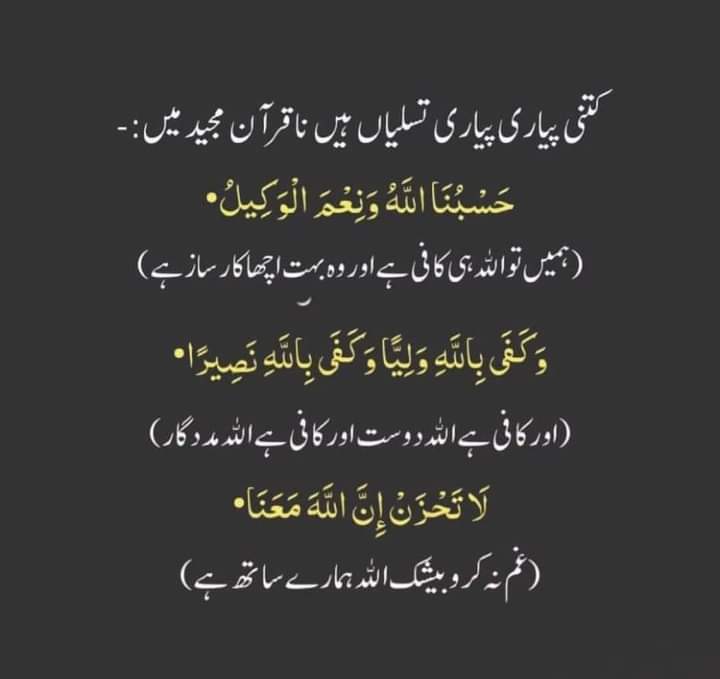 کتنی پیاری پیاری تسلیاں ہیں نا قرآن مجید میں:-
حَسْبُنَا اللَّهُ وَنِعْمَ الْوَكِيلُ•
(ہمیں تو اللہ ہی کافی ہے اور وہ بہت اچھا کارساز ہے)
وَكَفَى بِاللَّهِ وَلِيًّا وَكَفَى بِاللَّهِ نَصِيرًا•
(اور کافی ہے اللہ دوست اور کافی ہے اللہ مددگار)
لَا تَحْزَنْ إِنَّ اللَّهَ مَعَنَا•
(غم نہ کرو بیشک اللہ ہمارے ساتھ ہے)